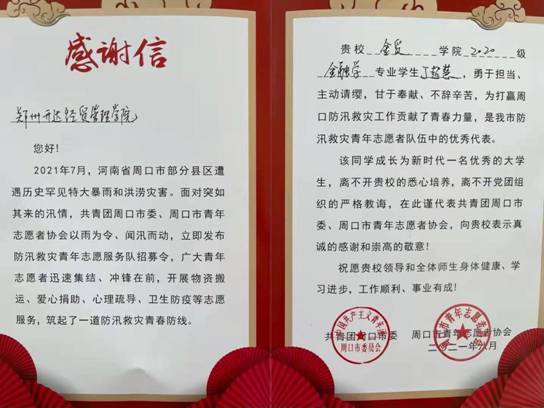 感谢信
郑州开达经贸管理学院
您好！
2021年7月，河南省周口市部分县区遭
遇历史罕见特大暴雨和洪涝灾害。面对突如
其来的汛情，共青团周口市委、周口市青年
志愿者协会以雨为令、闻汛而动，立即发布
防汛救灾青年志愿服务队招募令，广大青年
志愿者迅速集结、冲锋在前，开展物资搬
运、爱心捐助、心理疏导、卫生防疫等志愿
服务，筑起了一道防汛救灾青春防线。
贵校 金贸 学院 2020 级
金融学 专业学生 丁 ，勇于担当、
主动请缨，甘于奉献、不辞辛苦，为打赢周
口市防汛救灾工作贡献了青春力量，是我市防
汛救灾青年志愿者队伍中的优秀代表。
该同学成长为新时代一名优秀的大学
生，离不开贵校的悉心培养，离不开党团组
织的严格教诲，在此谨代表共青团周口市
委、周口市青年志愿者协会，向贵校表示真
诚的感谢和崇高的敬意！
祝愿贵校领导和全体师生身体健康、学
习进步，工作顺利、事业有成！
共青团周口市委 周口市青年志愿者协会
二〇二一年八月
中国共产主义青年团
周口市委员会
周口市青年志愿者协会